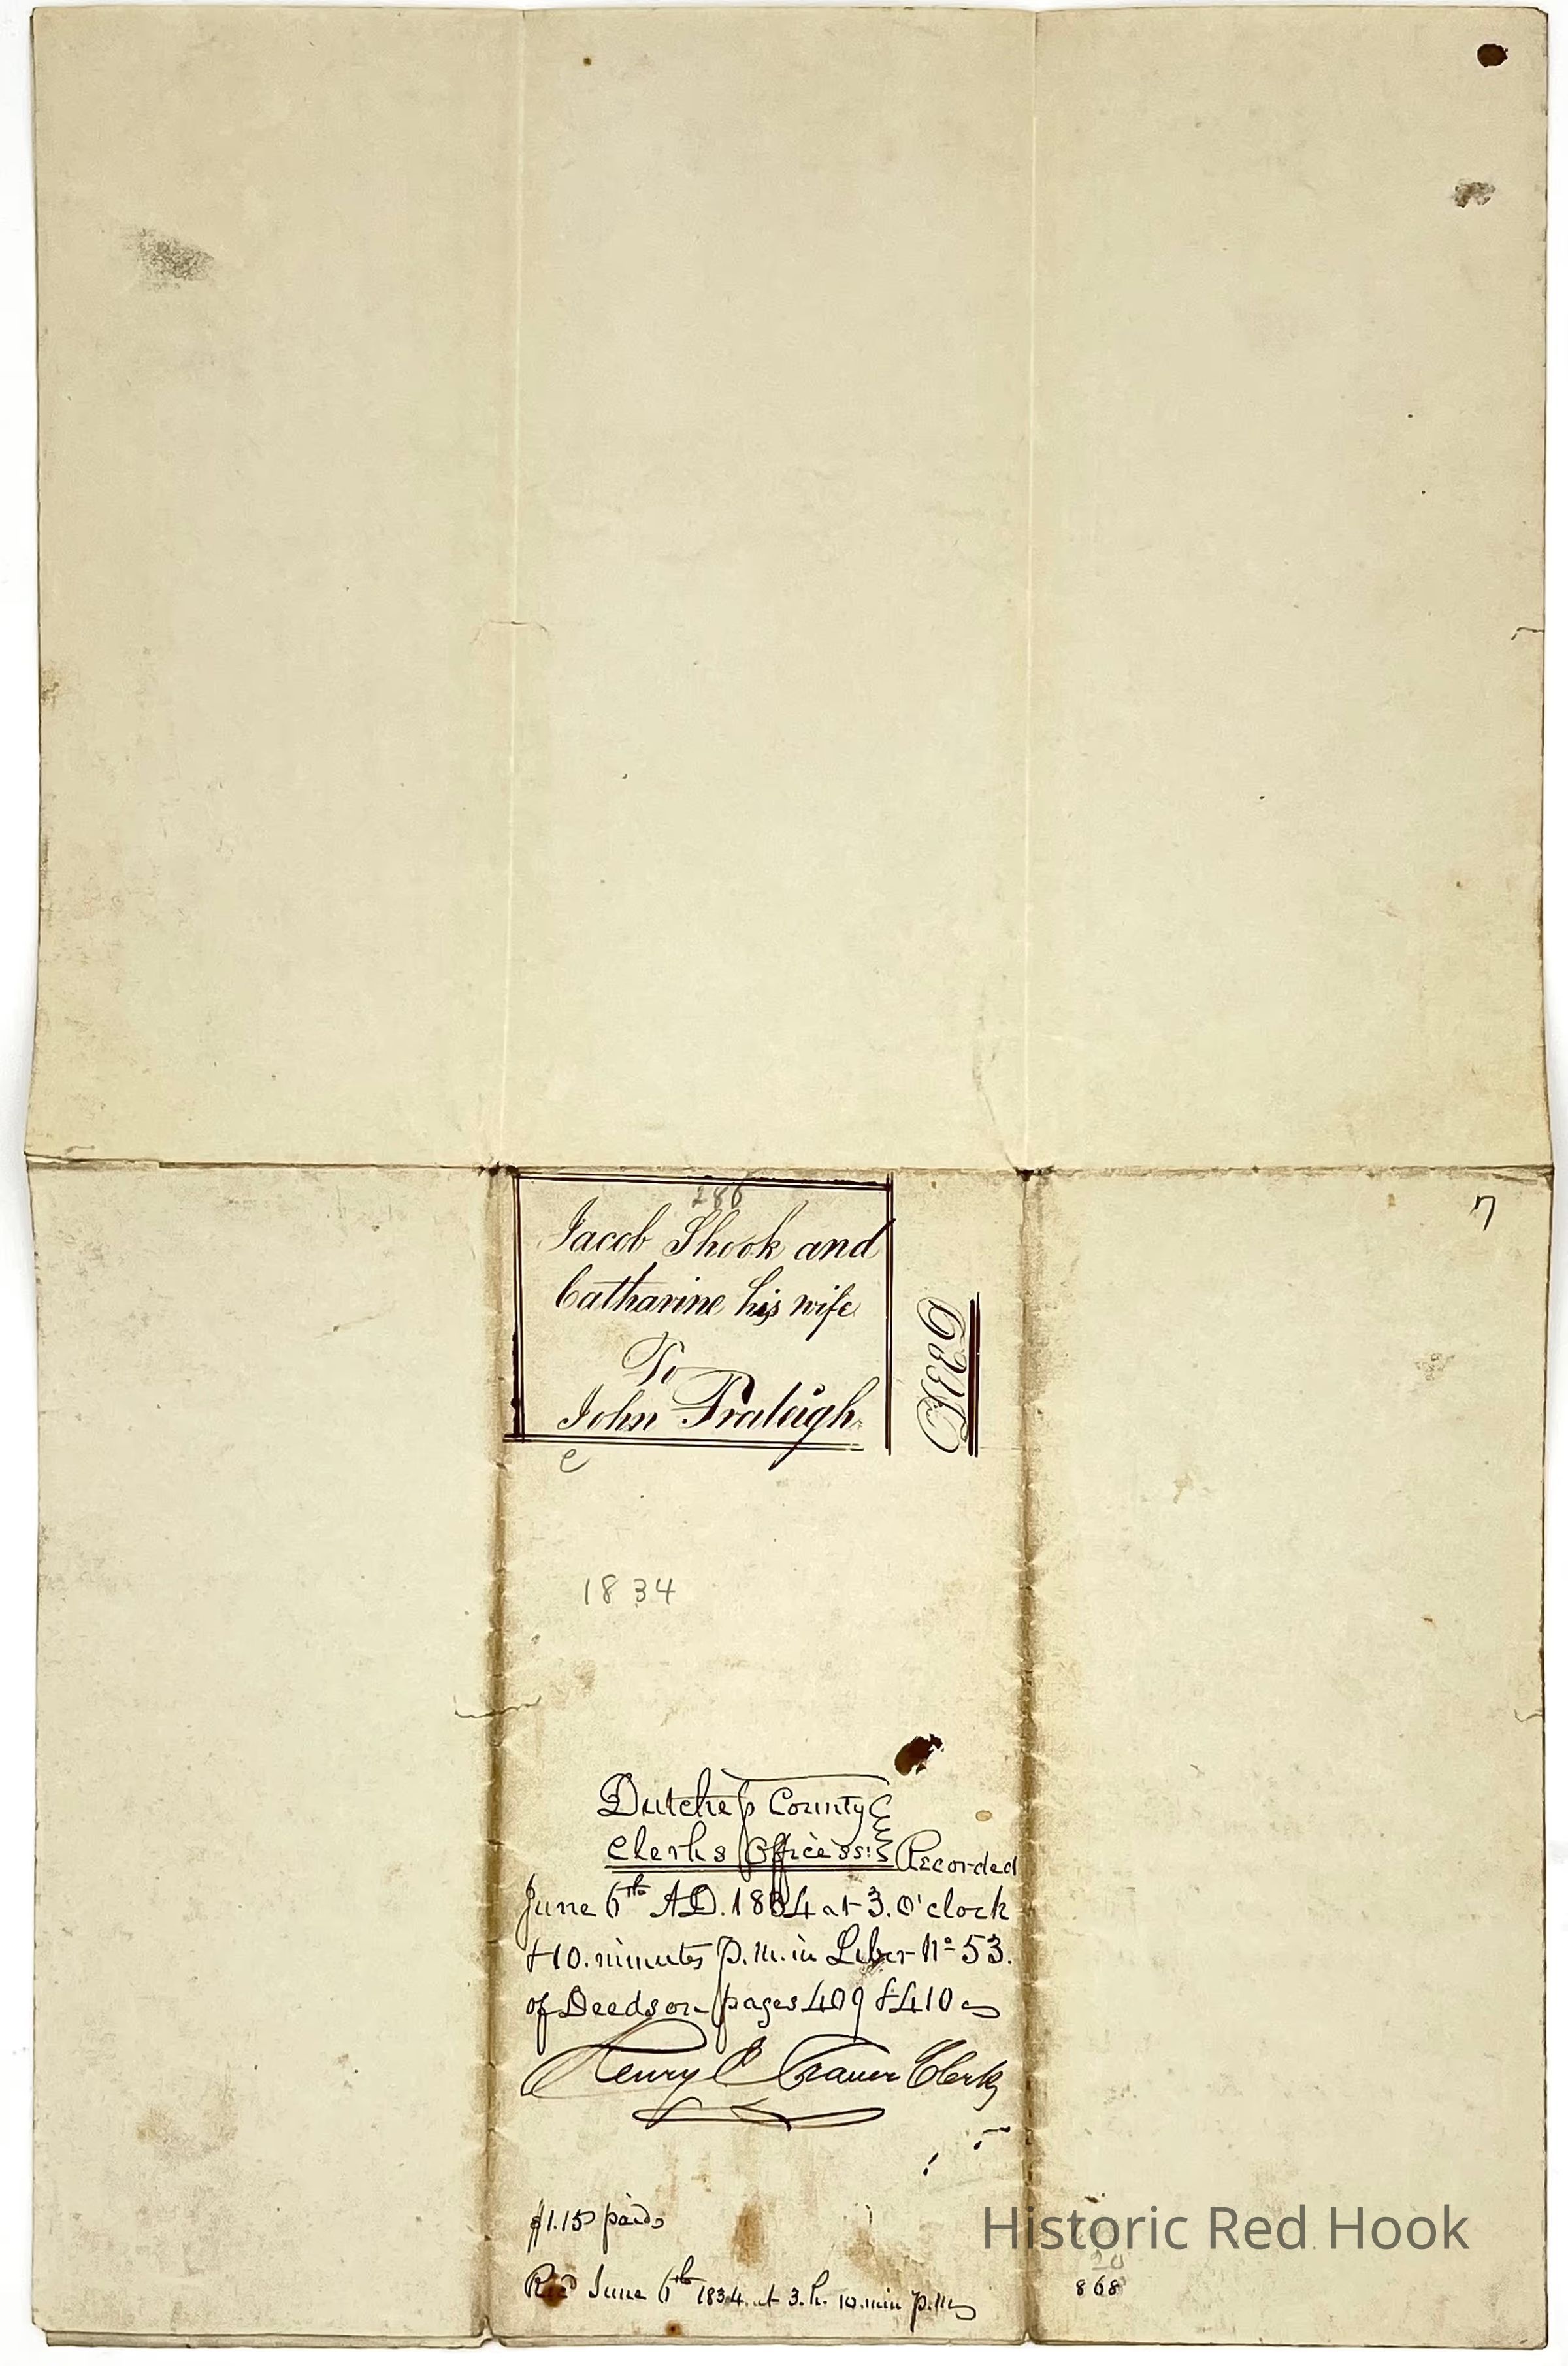 286
Jacob Shook and
Catharine his wife
To
John Fraleigh
DEED
e
7
1834
Dutchess County
Clerks Office ss: Recorded
June 6th A.D. 1834 at 3. O'clock
& 10. minutes P.M. in Liber No 53.
of Deeds on pages 409 & 410
Henry Traver Clerk
$1.15 paid
Recd June 6th 1834. at 3. h. 10. min P.M
Historic Red Hook
20
868